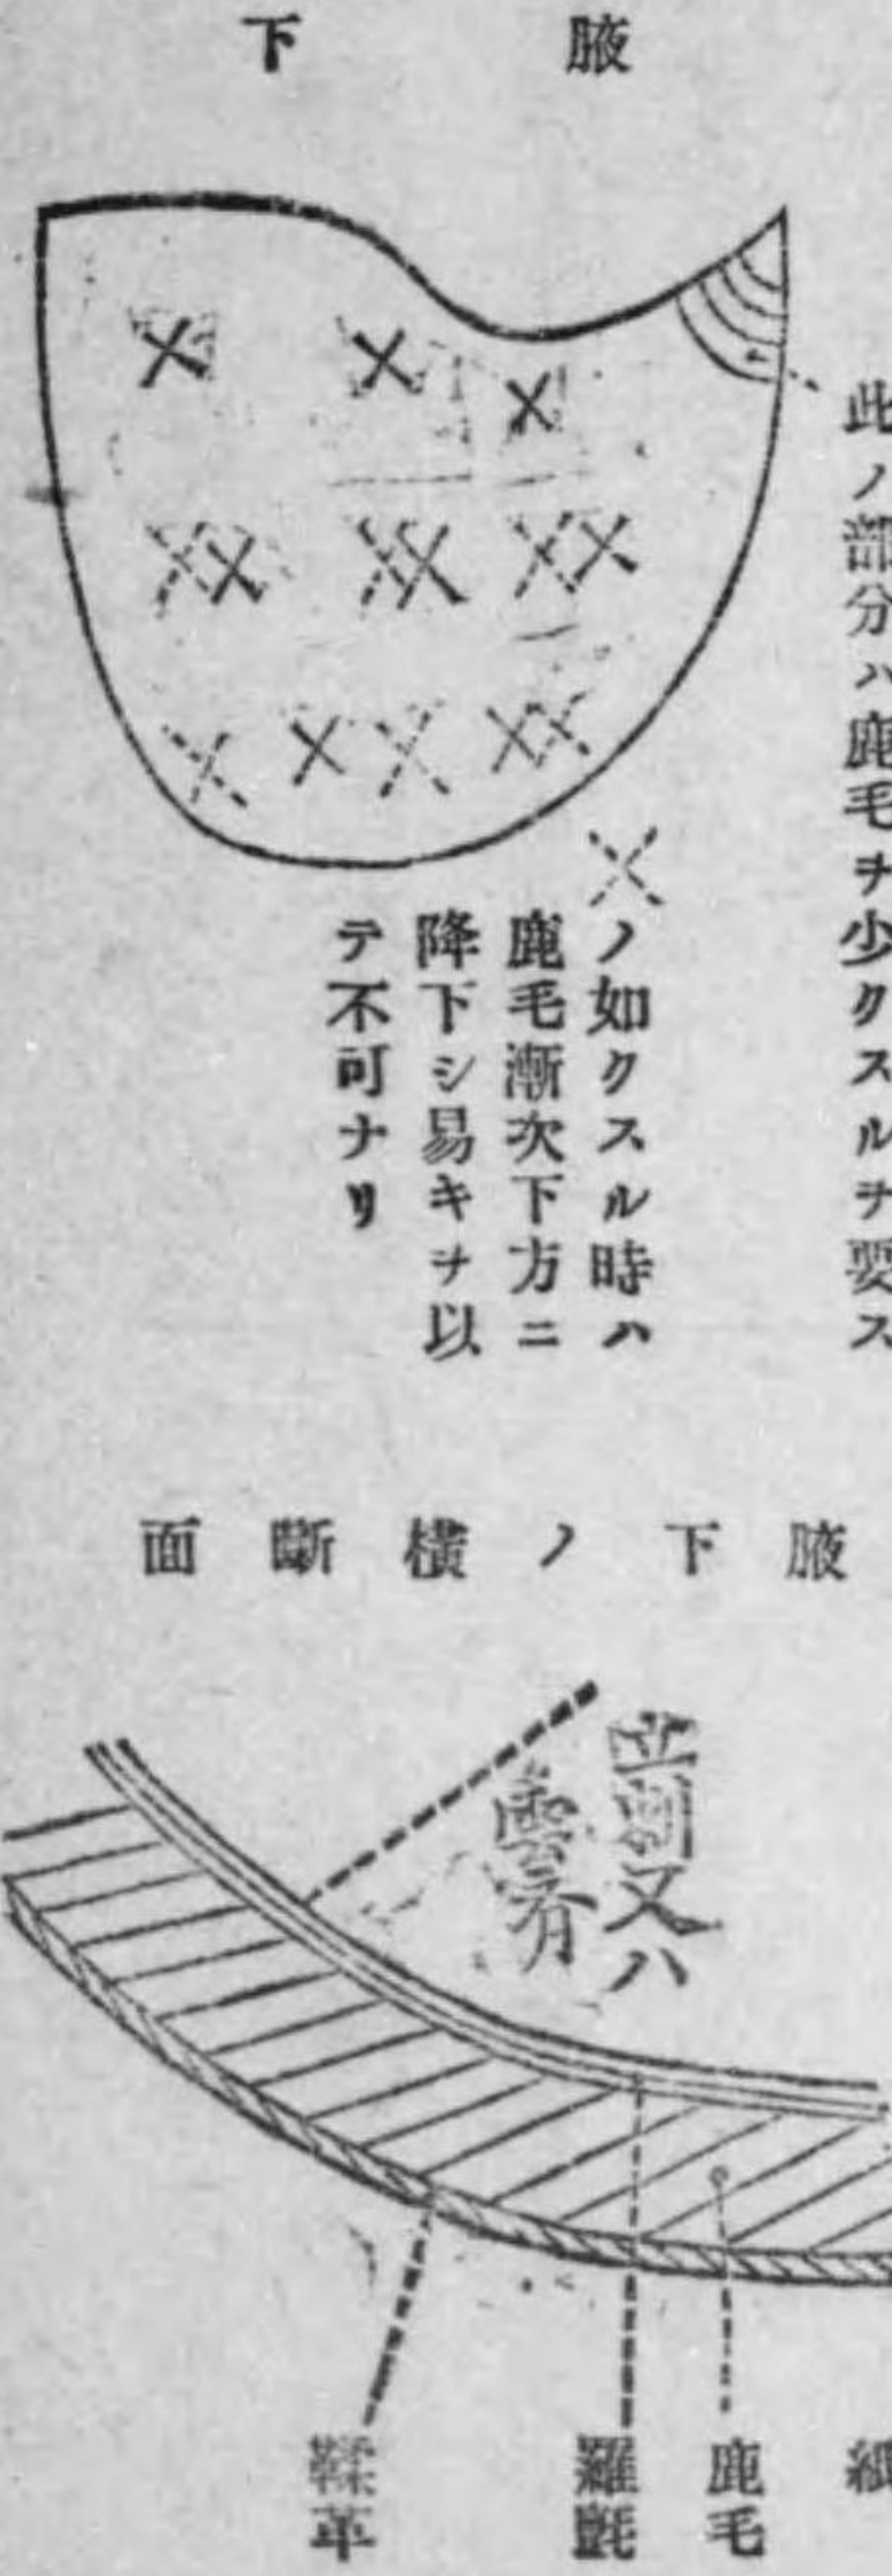 腋下
此ノ部分ハ鹿毛ヲ少クスルヲ要ス
ノ如クスル時ハ
鹿毛漸次下方ニ
降下シ易キヲ以
テ不可ナリ
腋下ノ横斷面
又ハ
鹿毛
羅氈
鞣革